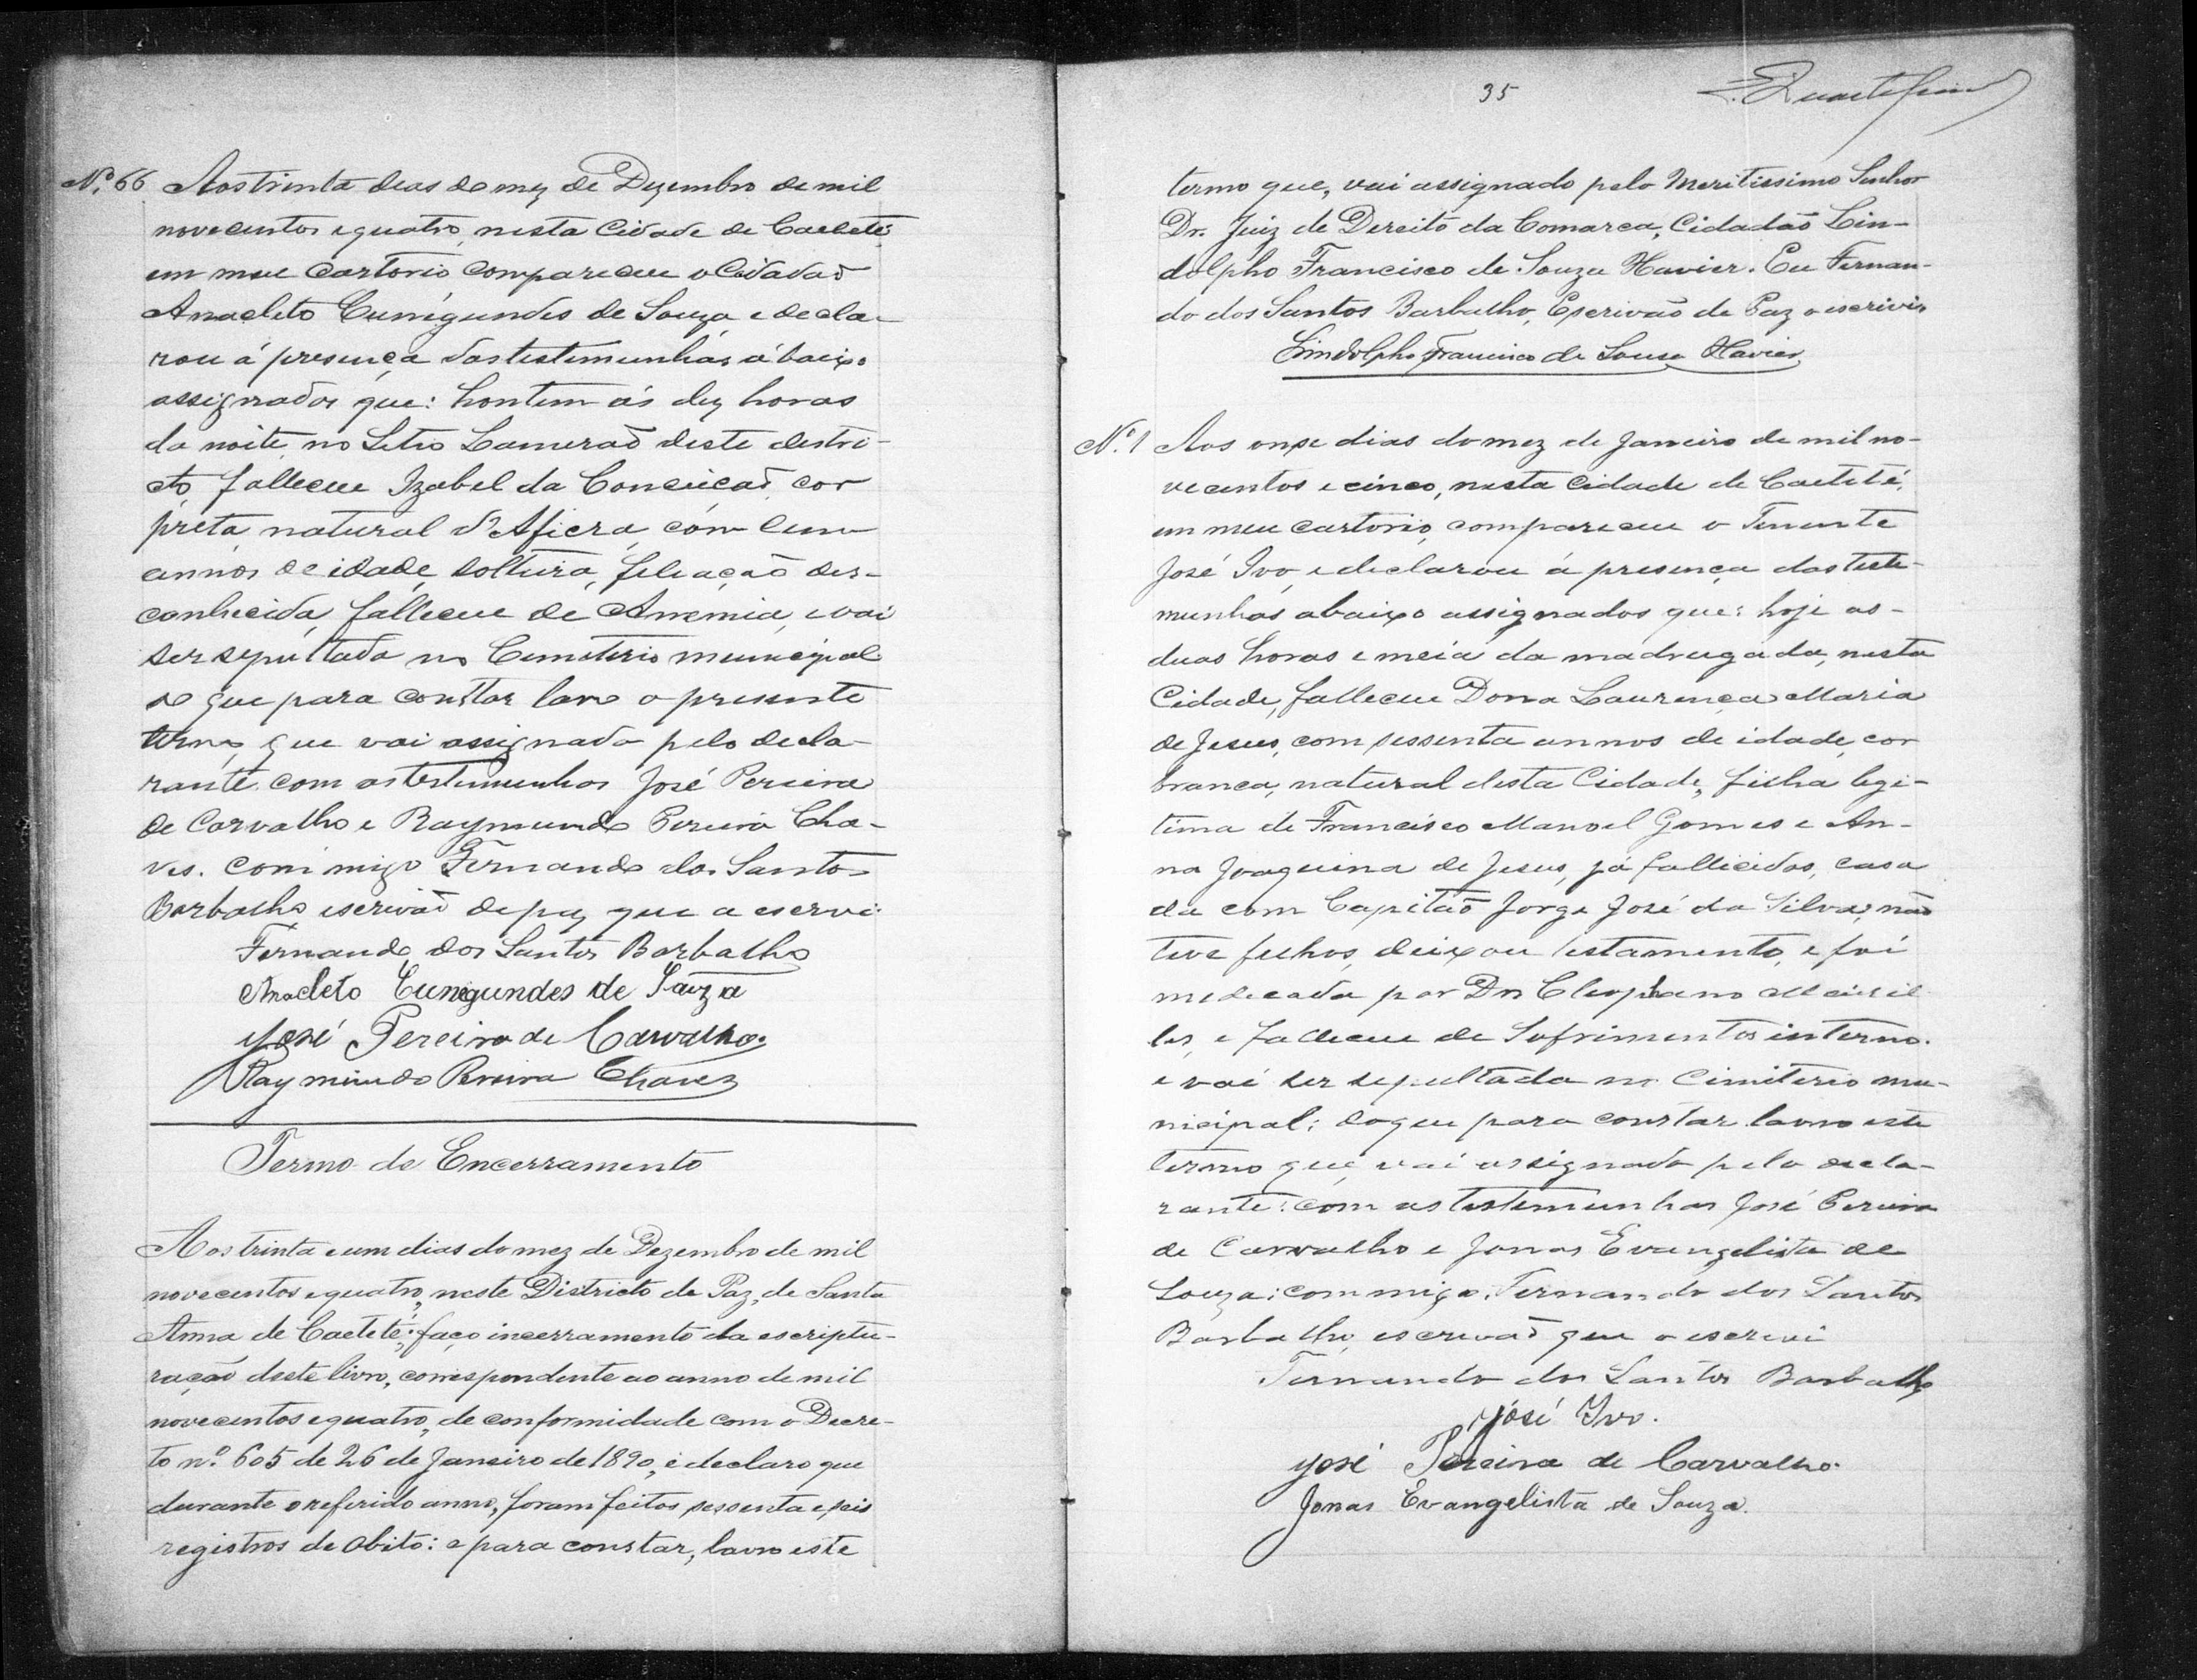 Nº 66 Aos trinta dias do mez de Dezembro de mil
novecentos e quatro, nesta Cidade de Caeteté,
em meu Cartorio compareceu o Cidadaõ
Anacleto Cunigundes de Souza e decla-
rou á presença das testemunhas abaixo
assignados que: hontem ás dez horas
da noite, no Sitio Lameraõ deste distri-
cto, falleceu Izabel da Conceiçaõ, cor
preta, natural d'Africa, com cem
annos de idade, solteira, filiaçaõ des-
conhecida, falleceu de Anemia, e vai
ser sepultada no Cemeterio municipal
do que para constar lavro o presente
termo, que vai assignado pelo decla-
rante com as testemunhas José Pereira
de Carvalho e Raymundo Pereira Cha-
ves. Commigo Fernando dos Santos
Barbalho escrivaõ de paz que a escrevi.
Fernando dos Santos Barbalho
Anacleto Cunegundes de Souza
José Pereira de Carvalho.
Raymundo Pereira Chaves
Termo de Encerramento
Aos trinta e um dias do mez de Dezembro de mil
novecentos e quatro, neste Districto de Paz, de Santa
Anna de Caeteté, faço incerramento da escriptu-
raçaõ deste livro, correspondente ao anno de mil
novecentos e quatro, de conformidade com o Decre-
to nº 605 de 26 de Janeiro de 1890, e declaro que
durante o referido anno, foram feitos sessenta e seis
registros de obito: e para constar, lavro este
35
termo que, vai assignado pelo Meritissimo Senhor
Dr. Juiz de Direito da Comarca, Cidadaõ Lin-
dolpho Francisco de Souza Xavier. Eu Fernan-
do dos Santos Barbalho, Escrivaõ de Paz o escrivi.
Lindolpho Francisco de Sousa Xavier.
Nº 1 Aos onze dias do mez de Janeiro de mil no-
vecentos e cinco, nesta Cidade de Caeteté,
em meu cartorio, compareceu o Tenente
José Ivo, e declarou á presença das teste-
munhas abaixo assignados que: hoje as-
duas horas e meia da madrugada, nesta
Cidade, falleceu Dona Laurença Maria
de Jesus, com sessenta annos de idade, cor
branca, natural desta Cidade, filha legi-
tima de Francisco Manoel Gomes e An-
na Joaquina de Jesus, já fallicidos, casa
da com Capitaõ Jorge José da Silva; naõ
teve filhos, deixou testamento, e foi
medicada por Dr. Cleophano Meirel
les, e falleceu de Sofrimentos interno.
e vai ser sepultada no Cimiterio mu-
nicipal: do que para constar lavro este
termo que, vai assignado pelo decla-
rante: com as testemunhas José Pereira
de Carvalho e Jonas Evangelista de
Souza: commigo, Fernando dos Santos
Barbalho, escrivaõ que o escrevi
Fernando dos Santos Barbalho
José Ivo.
José Pereira de Carvalho.
Jonas Evangelista de Souza.